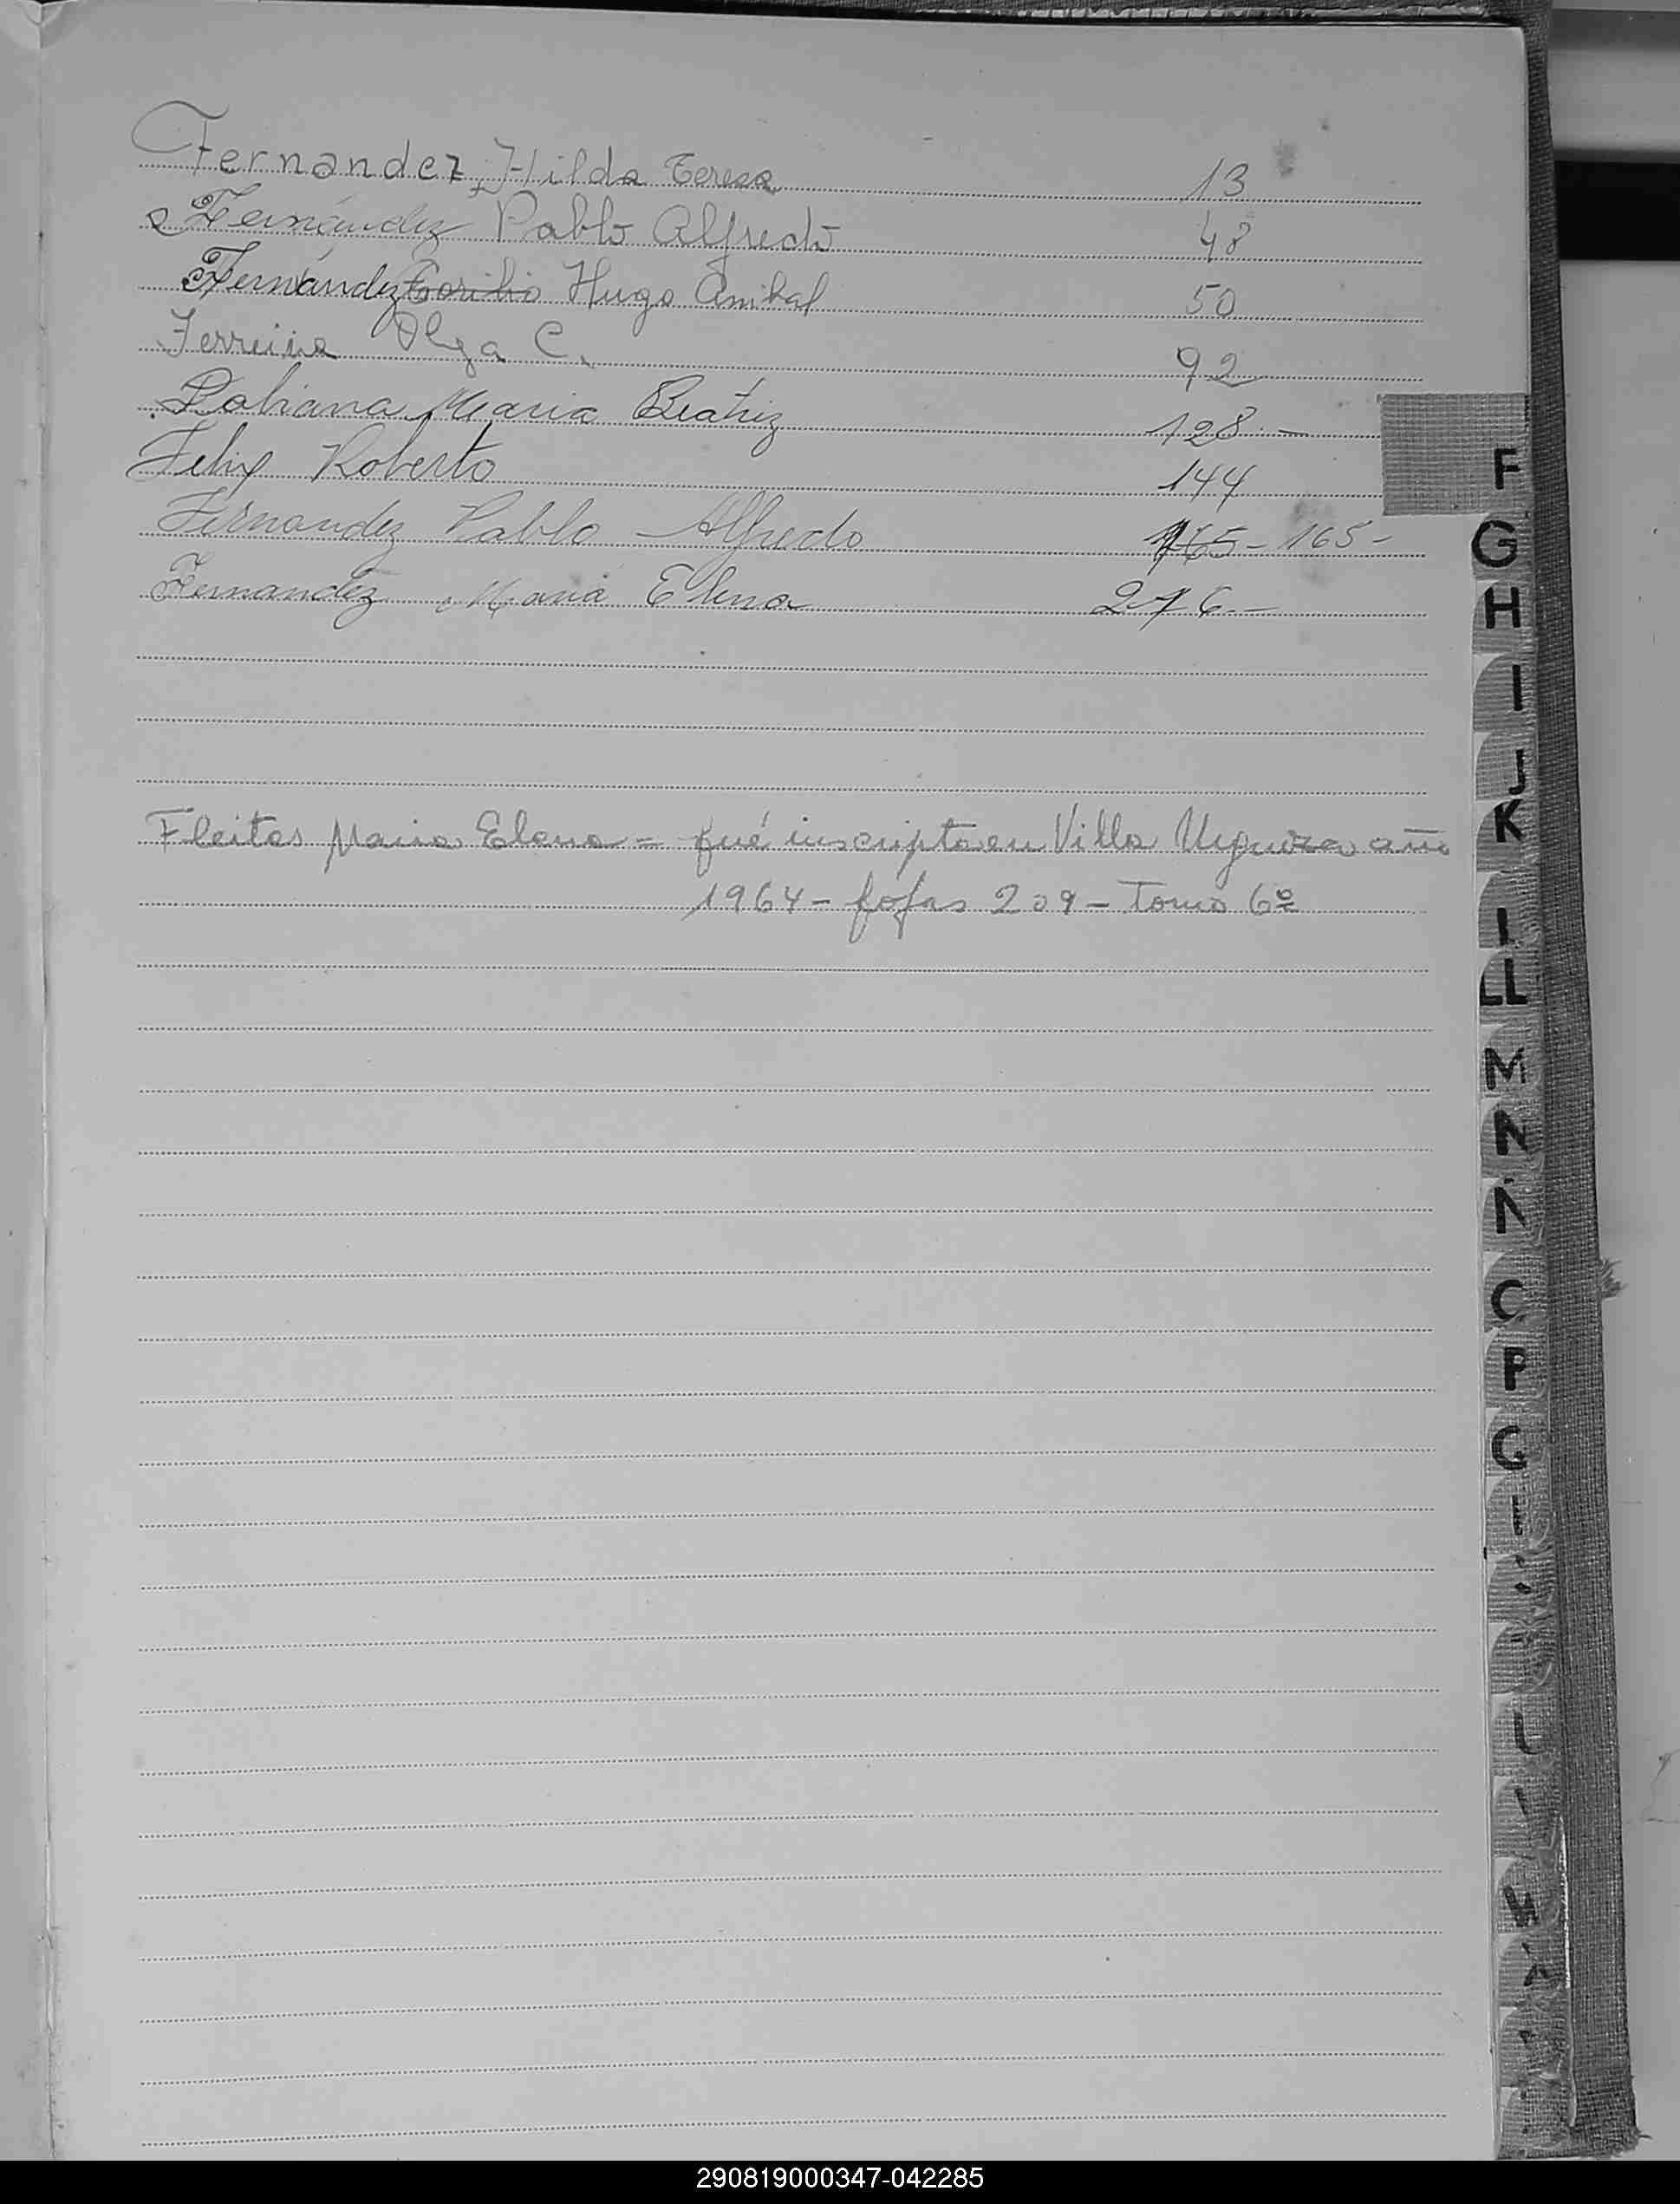 Fernandez, Hilda Teresa 13
Fernández Pablo Alfredo 48
Fernández Hugo Anibal 50
Ferreira Olga C. 92
Maria Beatriz 128.-
Felix Roberto 144
Fernandez Pablo Alfredo 165- 165-
Fernandez Maria Elena 276.-
Fleitas Maria Elena = fué inscripta en Villa Urquiza año
1964 - fojas 209 - Tomo 6º
F
G
H
I
J
K
L
LL
M
N
Ñ
O
P
Q
290819000347-042285